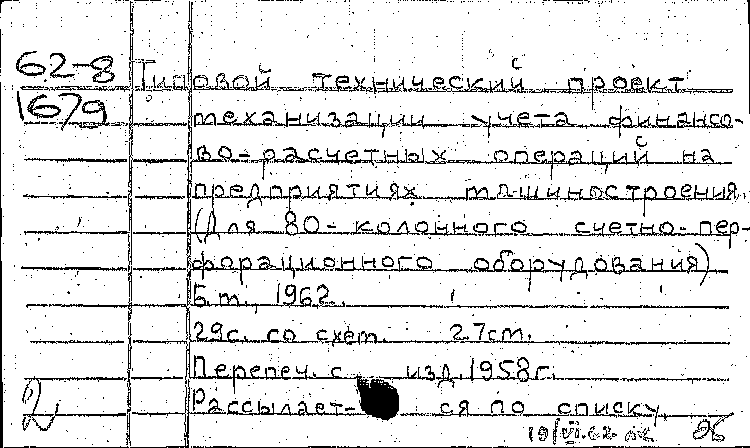 62-8 Типовой технический проект
1679 механизации учета финансо-
во-расчетных операций на
предприятиях машиностроения.
(Для 80-колонного счетно-пер-
форационного оборудования)
Б.м., 1962.
29с. со схем. 27см.
Перепеч. с изд. 1958г.
Рассылает- ся по списку.
2